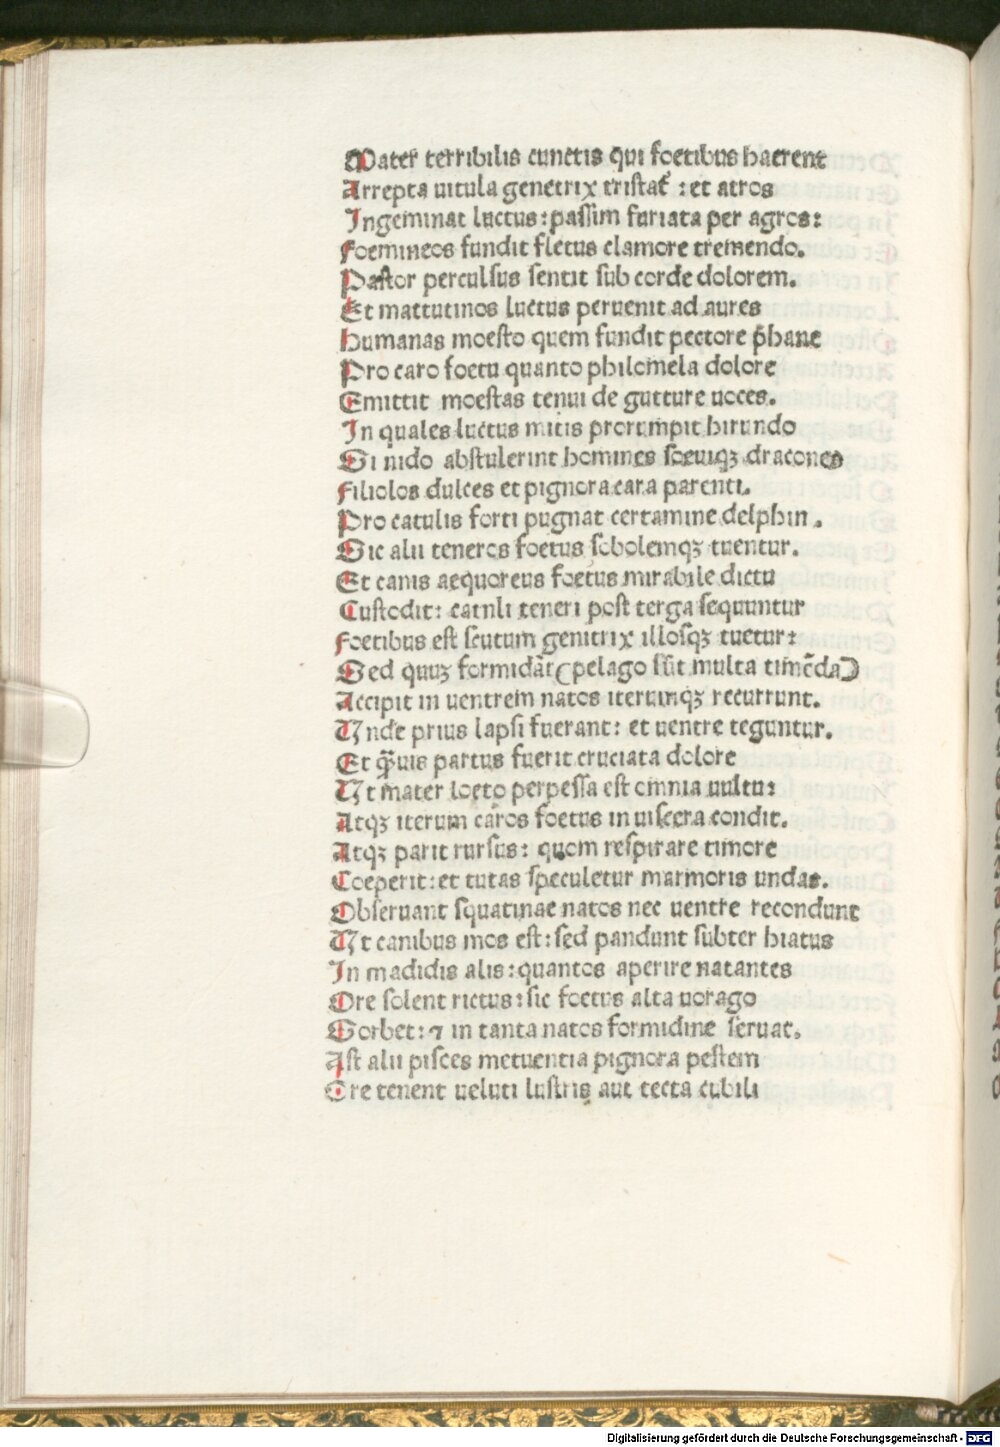 Mater terribilis cunctis qui foetibus haerent
Arrepta uitula genetrix tristat᷑ : et atros
Ingeminat luctus : passim furiata per agros :
Foemineos fundit fletus clamore tremendo.
Pastor perculsus sentit sub corde dolorem.
Et mattutinos luctus peruenit ad aures
Humanas moesto quem fundit pectore p̄hane
Pro caro foetu quanto philomela dolore
Emittit moestas tenui de gutture uoces.
In quales luctus mitis prorumpit hirundo
Si nido abstulerint homines soeuiqꝫ dracones
Filiolos dulces et pignora cara parenti.
Pro catulis forti pugnat certamine delphin .
Sic alii teneros foetus sobolemqꝫ tuentur.
Et canis aequoreus foetus mirabile dictu
Custodit : catuli teneri post terga sequuntur
Foetibus est scutum genitrix illosqꝫ tuetur :
Sed quuꝫ formidāt (pelago sūt multa timēda)
Accipit in uentrem natos iterumqꝫ recurrunt.
Unde prius lapsi fuerant : et uentre teguntur.
Et ꝙ̄uis partus fuerit cruciata dolore
Ut mater loeto perpessa est omnia uultu :
Atqꝫ iterum caros foetus in uiscera condit.
Atqꝫ parit rursus : quom respirare timore
Coeperit : et tutas speculetur marmoris undas.
Obseruant squatinae natos nec uentre recondunt
Ut canibus mos est : sed pandunt subter hiatus
In madidis alis : quantos aperire natantes
Ore solent rictus : sic foetus alta uorago
Sorbet : ⁊ in tanta natos formidine seruat.
Ast alii pisces metuentia pignora pestem
Ore tenent ueluti lustris aut tecta cubili
Digitalisierung gefördert durch die Deutsche Forschungsgemeinschaft - DFG